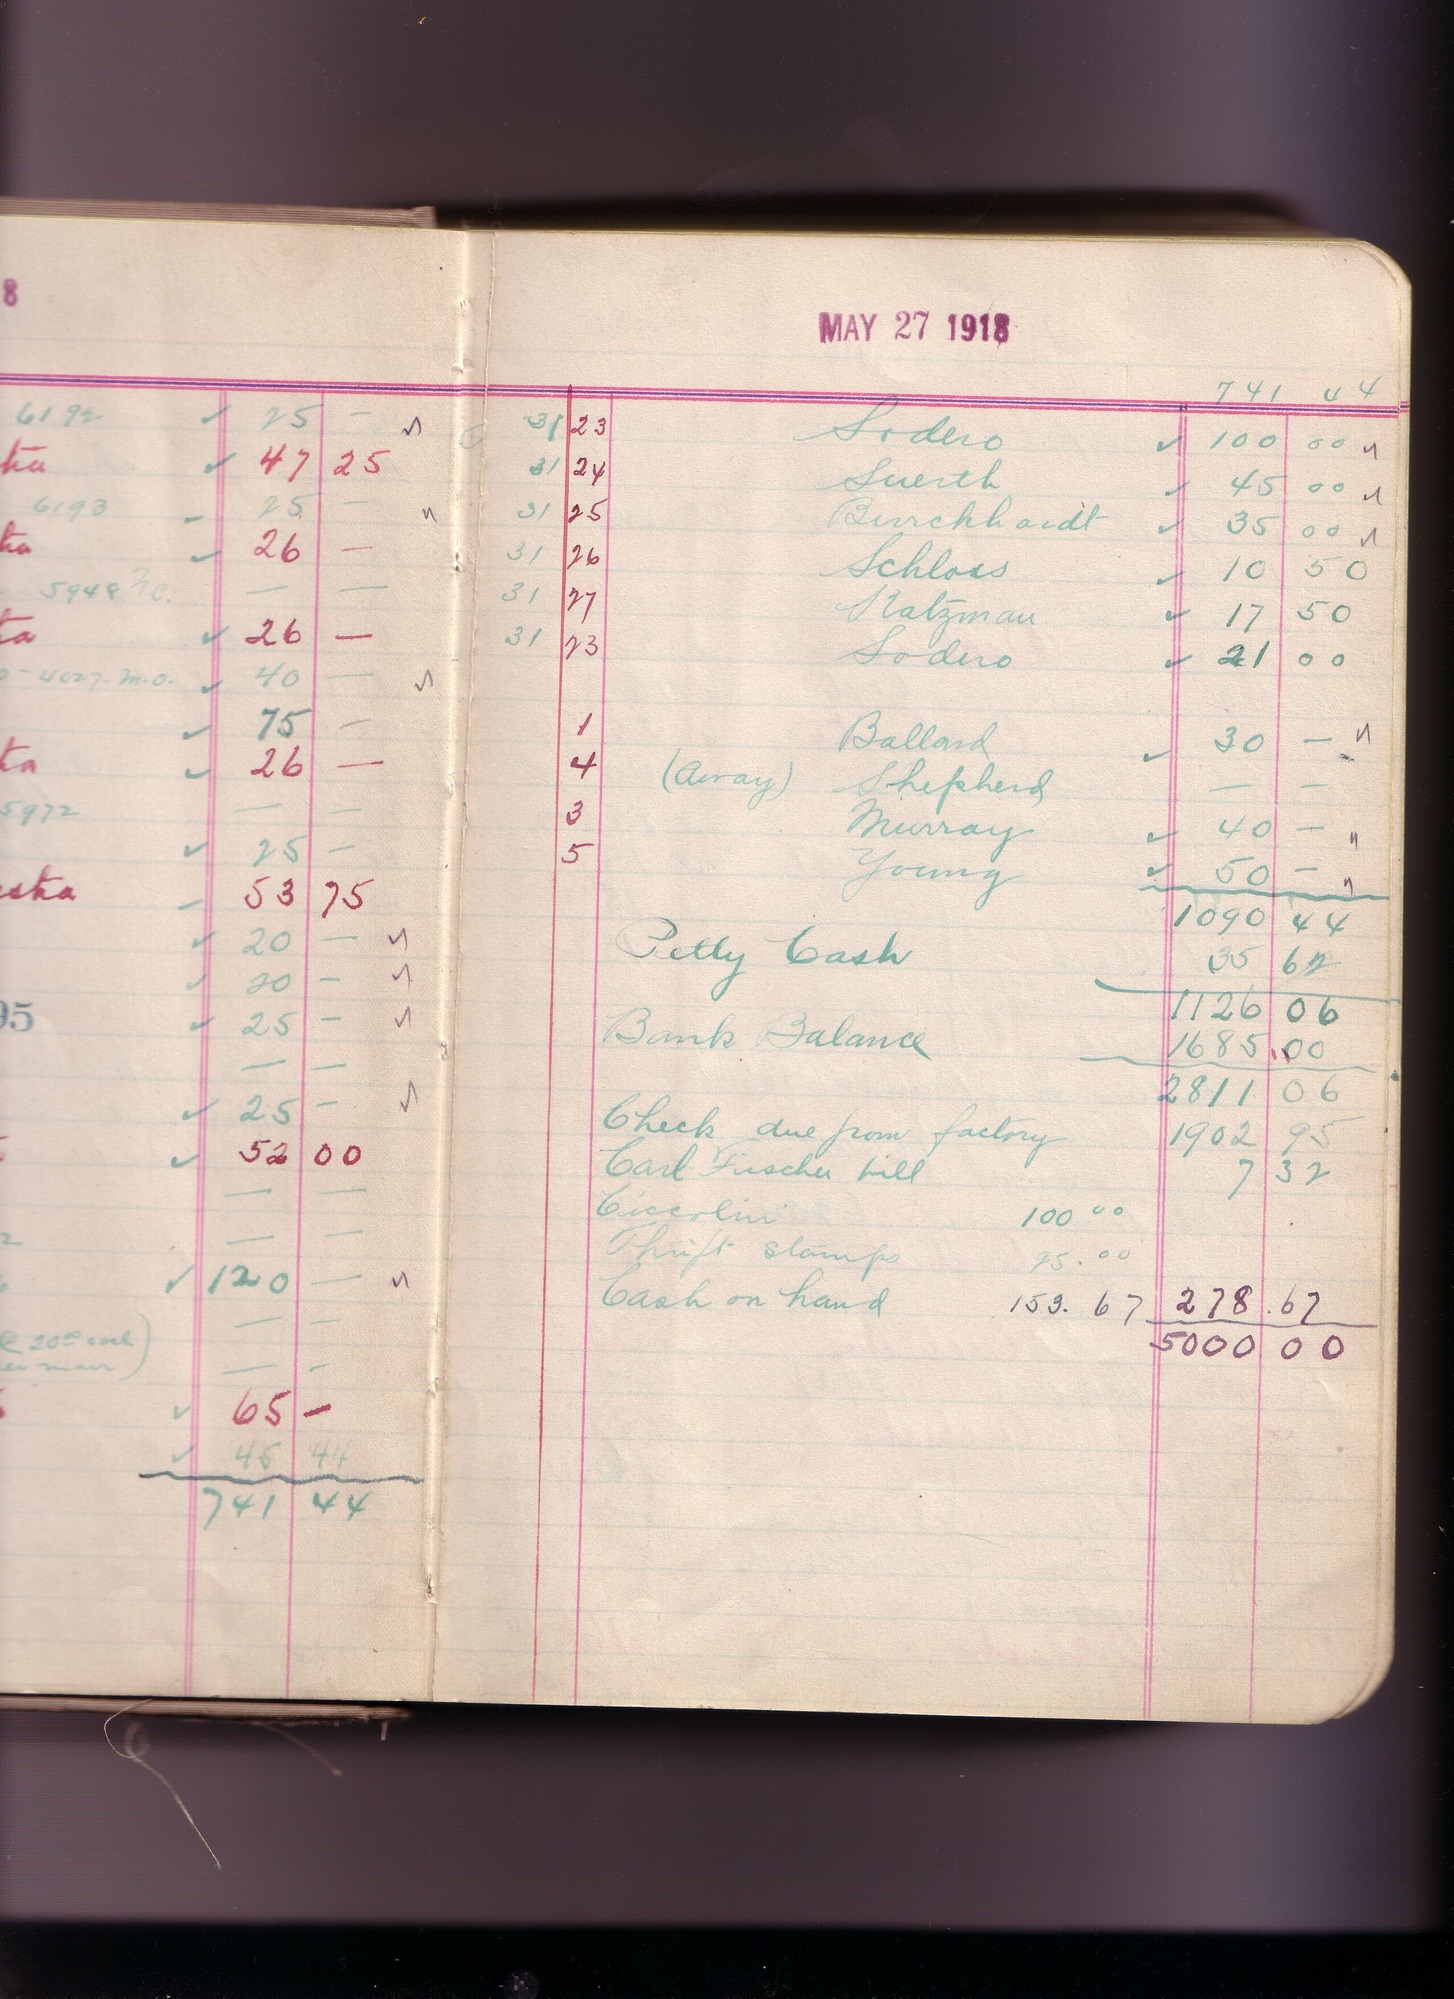 8
6192 ✓ 25 —
ta ✓ 47 25
6193 25 —
ta ✓ 26 —
5948 — —
ta ✓ 26 —
0-4027-M.O. ✓ 40 —
✓ 75 —
ta ✓ 26 —
5972 — —
✓ 25 —
esta 53 75
✓ 20 —
✓ 20 —
95 ✓ 25 —
— —
✓ 25 —
✓ 52 00
— —
2 — —
✓ 120 —
@ 20 — —
man) — -
✓ 65 —
✓ 45 44
741 44
MAY 27 1918
741 44
31 23 Sodero ✓ 100 00
31 24 Suerth ✓ 45 00
31 25 Burckhardt ✓ 35 00
31 26 Schloss ✓ 10 50
31 27 Katzman ✓ 17 50
31 23 Sodero ✓ 21 00
1 Ballard ✓ 30 —
4 (Away) Shepherd — —
3 Murray ✓ 40 —
5 Young ✓ 50 —
1090 44
Petty Cash 35 62
1126 06
Bank Balance 1685.00
2811 06
Check due from factory 1902 95
Carl Fischer bill 7 32
Ciccolini 100 00
Thrift stamps 25.00
Cash on hand 153.67 278.67
5000 00